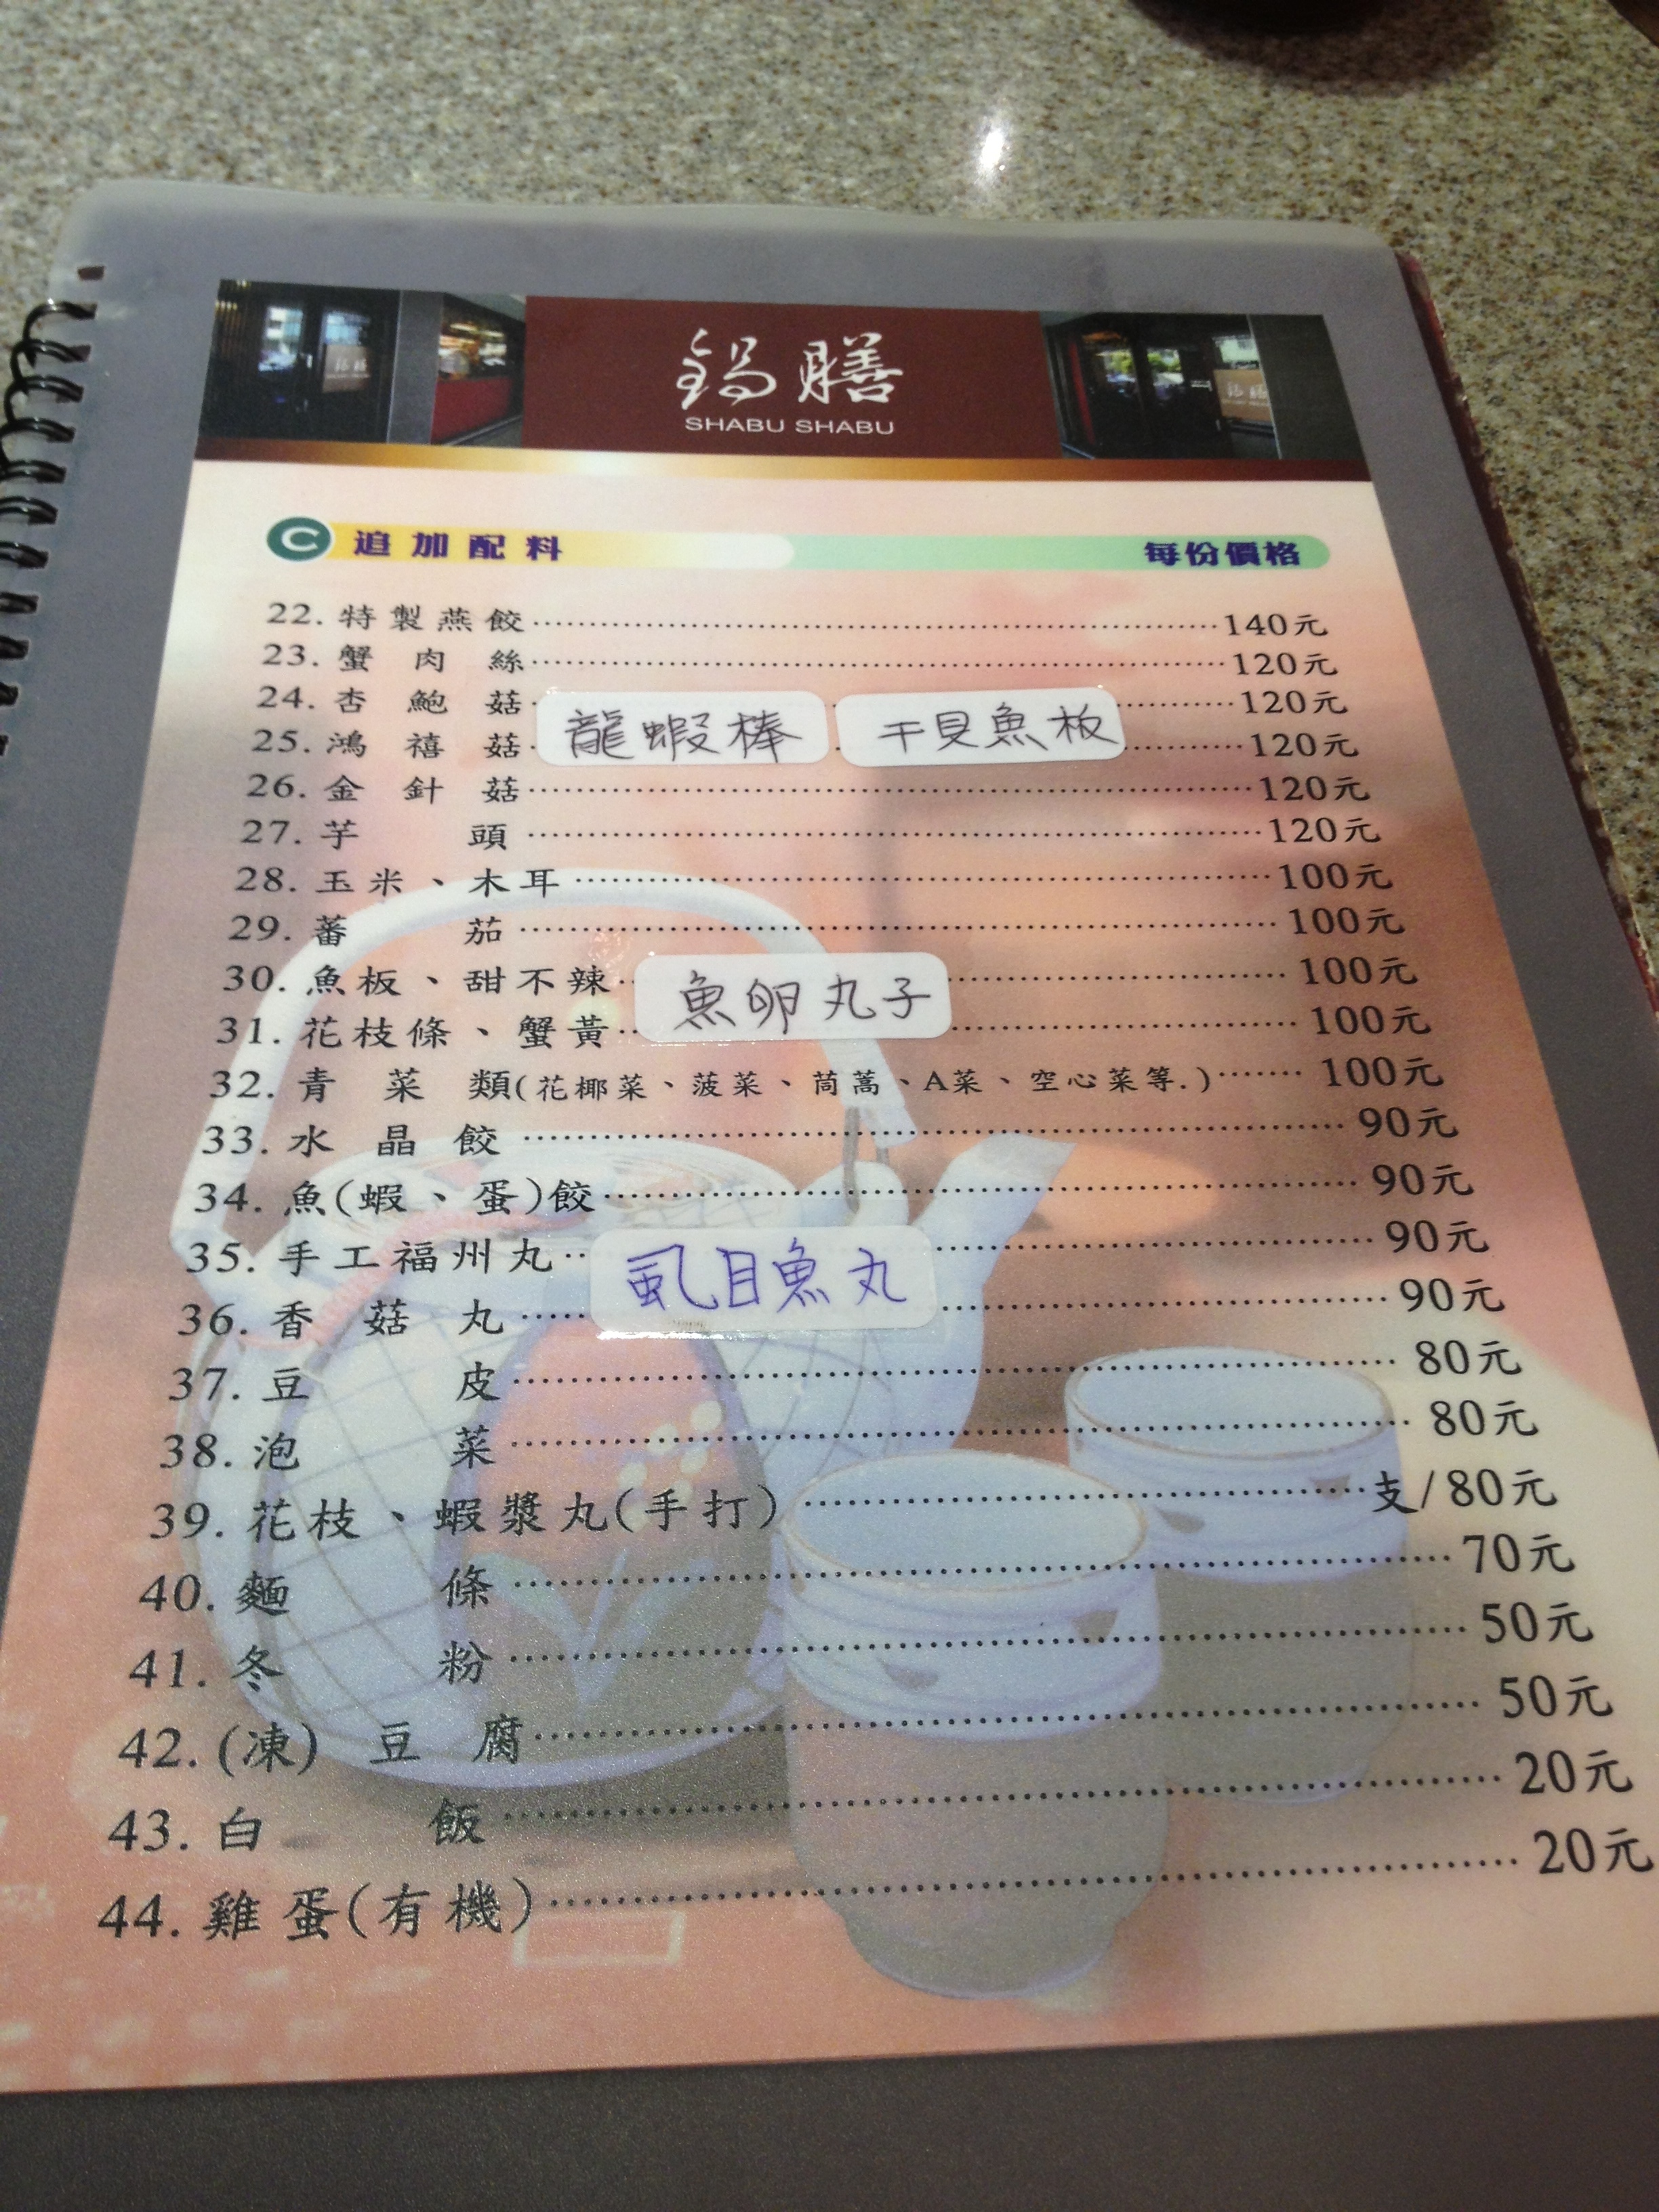 鍋膳
SHABU SHABU
C 追加配料 每份價格
22. 特製燕餃 140元
23. 蟹肉絲 120元
24. 杏鮑菇 120元
龍蝦棒 干貝魚板
25. 鴻禧菇 120元
26. 金針菇 120元
27. 芋頭 120元
28. 玉米、木耳 100元
29. 蕃茄 100元
30. 魚板、甜不辣 100元
魚卵丸子
31. 花枝條、蟹黃 100元
32. 青菜類(花椰菜、菠菜、茼蒿、A菜、空心菜等.) 100元
33. 水晶餃 90元
34. 魚(蝦、蛋)餃 90元
35. 手工福州丸 90元
虱目魚丸
36. 香菇丸 90元
37. 豆皮 80元
38. 泡菜 80元
39. 花枝、蝦漿丸(手打) 支/80元
40. 麵條 70元
41. 冬粉 50元
42. (凍)豆腐 50元
43. 白飯 20元
44. 雞蛋(有機) 20元